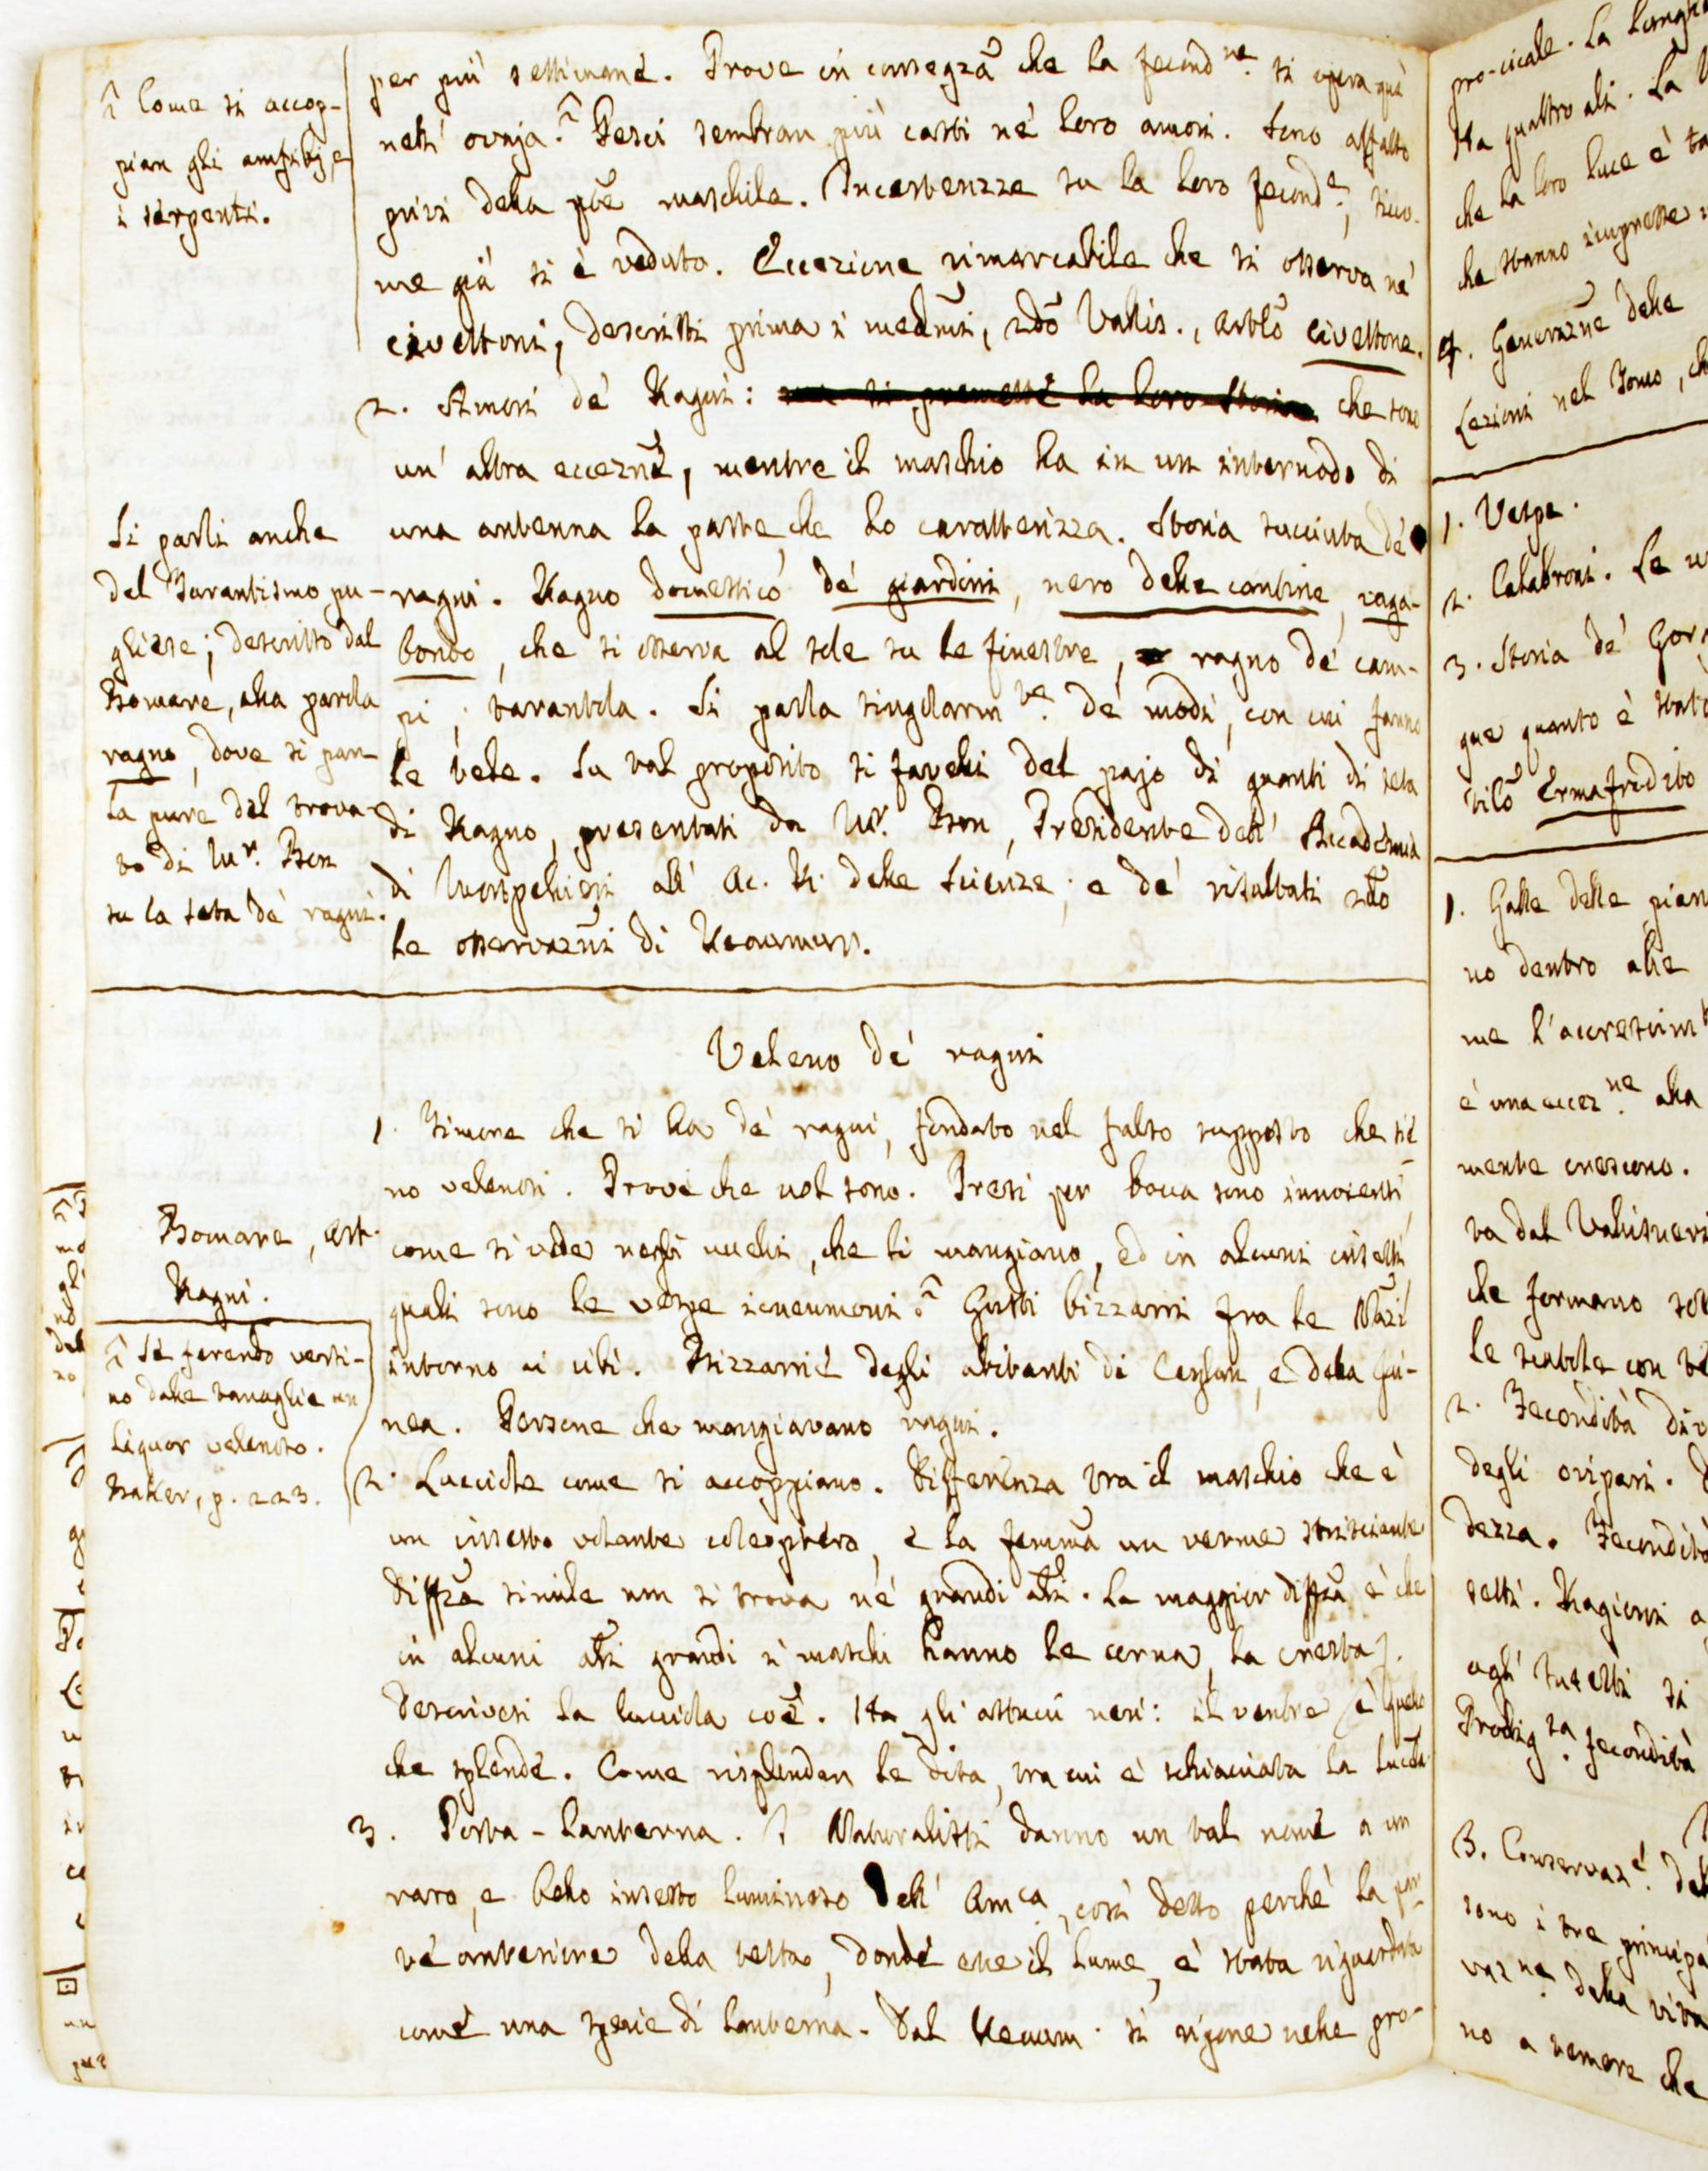 per più settimane. Prove in consegzã che la fecondne. si opera quì
nell' ovaja.^ Pesci sembran più casti ne' loro amori. Sono affatto
privi della pte maschile. Incertezze su la loro fecond.e, sicco-
me già si è veduto. Eccezione rimarcabile che si osserva ne'
civettoni, descritti prima i medmi, 2do Vallis., artlo civettone.
2. Amori de' Ragni: che sono
un' altra eccezne, mentre il maschio ha in un internodo di
una antenna la parte, che lo caratterizza. Storia succinta de'
ragni. Ragno domestico de' giardini, nero delle cantine, vaga-
bondo, che si osserva al sole su le finestre, ragno de' cam-
pi, tarantola. Si parla singolarmte. de' modi, con cui fanno
le tele. Su tal proposito si favelli del pajo di guanti di seta
di Ragno, presentati da Mr. Bon, Presidente dell' Accademia
di Montpellieri all' Ac. R. delle Scienze; e de' risultati 2do
le osservazni di Reaumur.
^ Come si accop-
pian gli amfibj, e
i serpenti.
Si parli anche
del Tarantismo pu-
gliese; descritto dal
Bomare, alla parola
ragno, dove si par-
la pure del trova-
to di Mr. Bon
su la seta de' ragni.
Veleno de' ragni
1. Timore che si ha de' ragni, fondato nel falso supposto che sie-
no velenosi. Prove che nol sono. Presi per bocca sono innocenti,
come si vede negli uccelli, che li mangiano, ed in alcuni insetti,
quali sono le vespe icneumoni.^ Gusti bizzarri fra le Nazi
intorno ai cibi. Bizzarrie degli abitanti di Ceylan, e della Gui-
nea. Persone che mangiavano ragni.
2. Lucciole come si accoppiano. Differenza tra il maschio che è
un insetto volante coleoptero, e la femma un verme strisciante
Diffza simile non si trova ne' grandi ali. La maggior diffza è che
in alcuni ali grandi i maschi hanno le corna, la cresta).
Descrivesi la lucciola coe. Ha gli astucci neri: il ventre è quello
che splende. Come risplendan le dita, tra cui è schiacciata la lucciola
3. Porta-lanterna. I Naturalisti danno un tal nome a un
raro, e bello insetto luminoso dell' Amca, così detto perchè la par-
te anteriore della testa, donde esce il lume, è stata riguardata
come una spezie di lanterna. Dal Reaum. si ripone nelle pro-
Bomare, art.
Ragni.
^ Se ferendo versi-
no dalle tanaglie un
liquor velenoso.
Baker, p. 223.
pro-cicale. La
Ha quattro ali. La
che la loro luce è
che stanno impresse
4. Generazne delle
Lezioni nel Tomo,
1. Vespe.
2. Calabroni. Le
3. Storia de'
que quanto è stato
tilo Ermafrodito
1. Galle delle
no dentro alle
me l'
è una eccezne. alla
mente crescono.
ta dal
che formano
le scatole con
2. Fecondità
degli ovipari.
dezza. Fecondità
setti. Ragioni a
agli Insetti si
Prodigsa. fecondità
3.
sono i tre
vazne. della vita
no a temere che